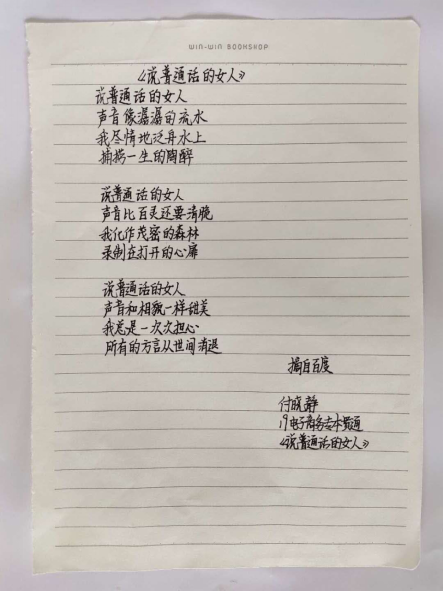 WIN-WIN BOOKSHOP
《说普通话的女人》
说普通话的女人
声音像潺潺的流水
我尽情地泛舟水上
捕捞一生的陶醉
说普通话的女人
声音比百灵还要清脆
我化作茂密的森林
录制在打开的心扉
说普通话的女人
声音和相貌一样甜美
我总是一次次担心
所有的方言从世间消退
摘自百度
付晓静
19电子商务专本贯通
《说普通话的女人》